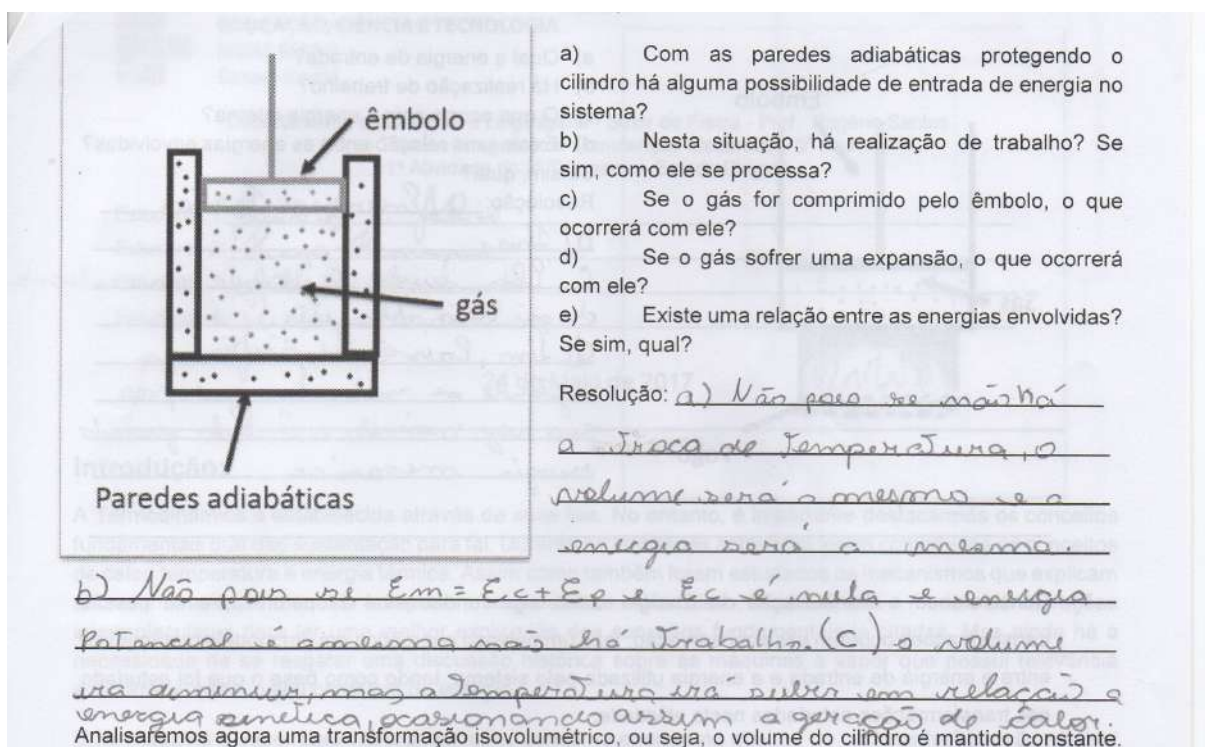 êmbolo
gás
Paredes adiabáticas
a) Com as paredes adiabáticas protegendo o
cilindro há alguma possibilidade de entrada de energia no
sistema?
b) Nesta situação, há realização de trabalho? Se
sim, como ele se processa?
c) Se o gás for comprimido pelo êmbolo, o que
ocorrerá com ele?
d) Se o gás sofrer uma expansão, o que ocorrerá
com ele?
e) Existe uma relação entre as energias envolvidas?
Se sim, qual?
Resolução: a) Não pois se não há
a troca de temperatura, o
volume será o mesmo e a
energia será a mesma.
b) Não pois se Em = Ec + Ep e Ec é nula e energia
Potencial é a mesma não há Trabalho. (C) o volume
ira diminuir, mas a Temperatura ira subir em relação a
energia cinética, ocasionando assim a geração de calor.
Analisaremos agora uma transformação isovolumétrico, ou seja, o volume do cilindro é mantido constante.